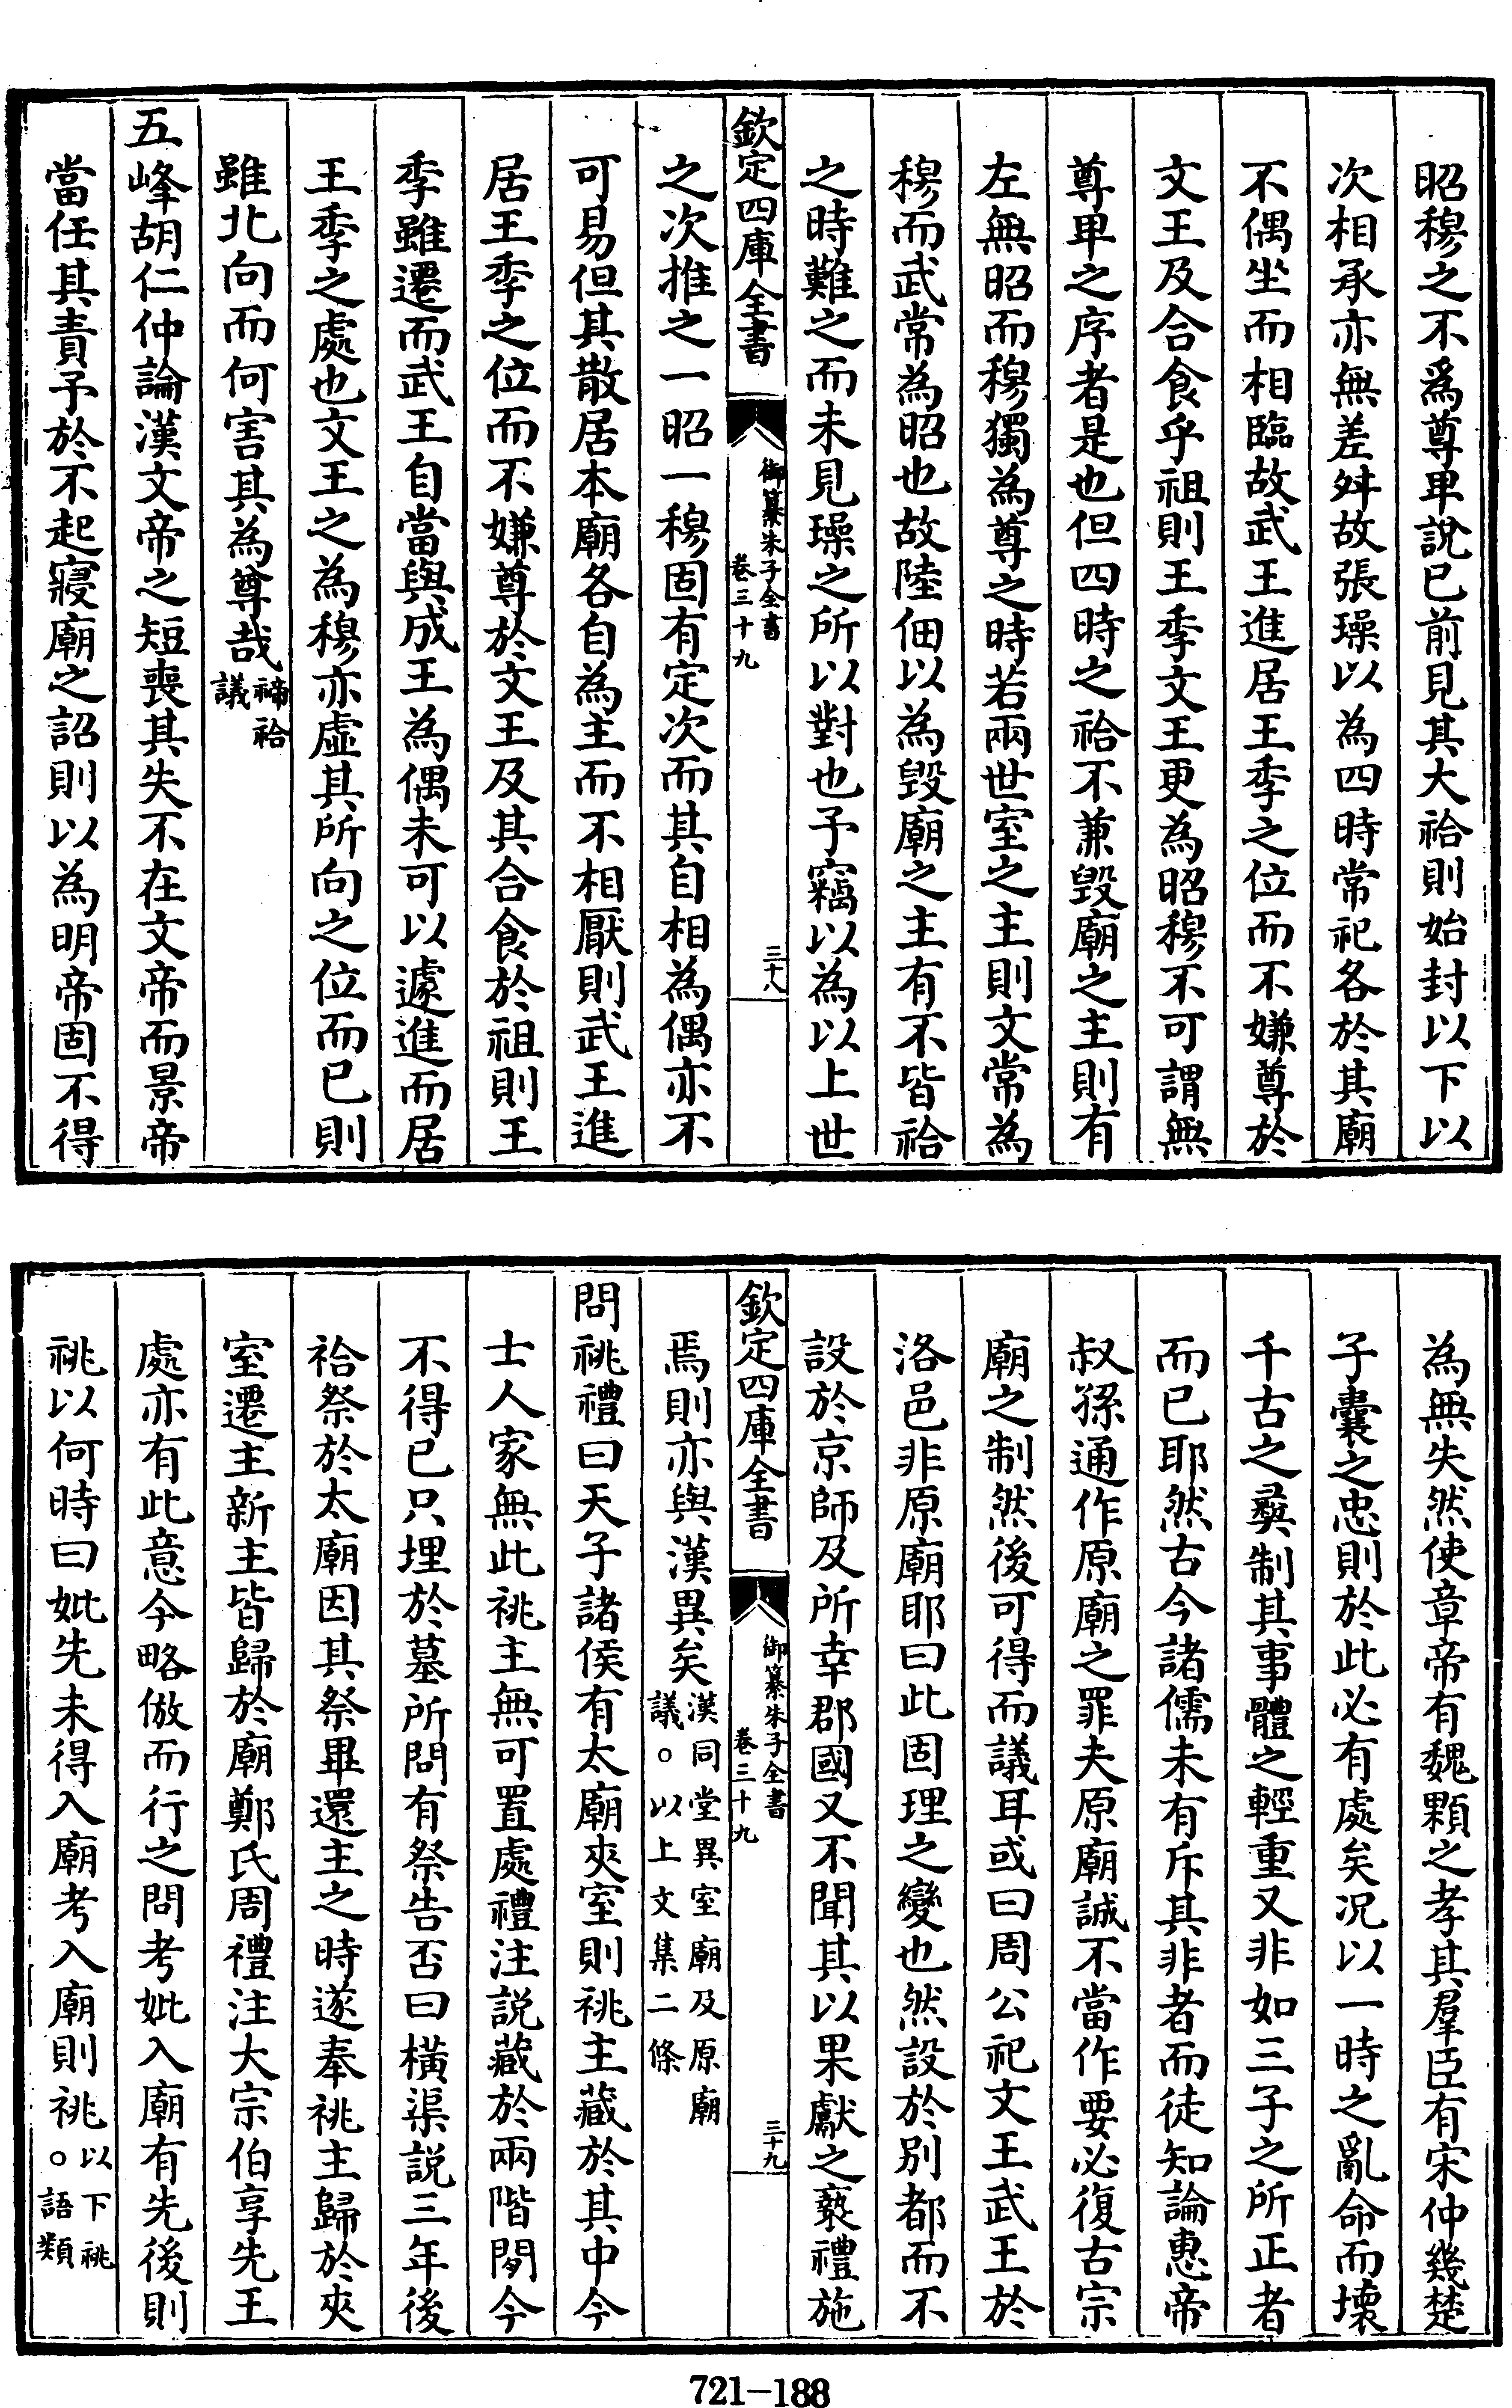 昭穆之不爲尊卑說已前見其大祫則始封以下以
次相承亦無差舛故張璪以為四時常祀各於其廟
不偶坐而相臨故武王進居王季之位而不嫌尊於
文王及合食乎祖則王季文王更為昭穆不可謂無
尊卑之序者是也但四時之祫不兼毀廟之主則有
左無昭而穆獨為尊之時若兩世室之主則文常為
穆而武常為昭也故陸佃以為毀廟之主有不皆祫
之時難之而未見璪之所以對也予竊以為以上世
欽定四庫全書
御纂朱子全書
卷三十九
三十八
之次推之一昭一穆固有定次而其自相為偶亦不
可易但其散居本廟各自為主而不相厭則武王進
居王季之位而不嫌尊於文王及其合食於祖則王
季雖遷而武王自當與成王為偶未可以遽進而居
王季之處也文王之為穆亦虛其所向之位而已則
雖北向而何害其為尊哉禘祫
議
五峰胡仁仲論漢文帝之短喪其失不在文帝而景帝
當任其責予於不起寢廟之詔則以為明帝固不得
為無失然使章帝有魏顆之孝其羣臣有宋仲幾楚
子囊之忠則於此必有處矣况以一時之亂命而壞
千古之彝制其事體之輕重又非如三子之所正者
而已耶然古今諸儒未有斥其非者而徒知論惠帝
叔孫通作原廟之罪夫原廟誠不當作要必復古宗
廟之制然後可得而議耳或曰周公祀文王武王於
洛邑非原廟耶曰此固理之變也然設於别都而不
設於京師及所幸郡國又不聞其以果獻之褻禮施
欽定四庫全書
御纂朱子全書
卷三十九
三十九
焉則亦與漢異矣漢同堂異室廟及原廟
議。以上文集二條
問祧禮曰天子諸侯有太廟夾室則祧主藏於其中今
士人家無此祧主無可置處禮注説藏於兩階間今
不得已只埋於墓所問有祭告否曰橫渠説三年後
祫祭於太廟因其祭畢還主之時遂奉祧主歸於夾
室遷主新主皆歸於廟鄭氏周禮注大宗伯享先王
處亦有此意今略倣而行之問考妣入廟有先後則
祧以何時曰妣先未得入廟考入廟則祧以下祧
。語類
721-188